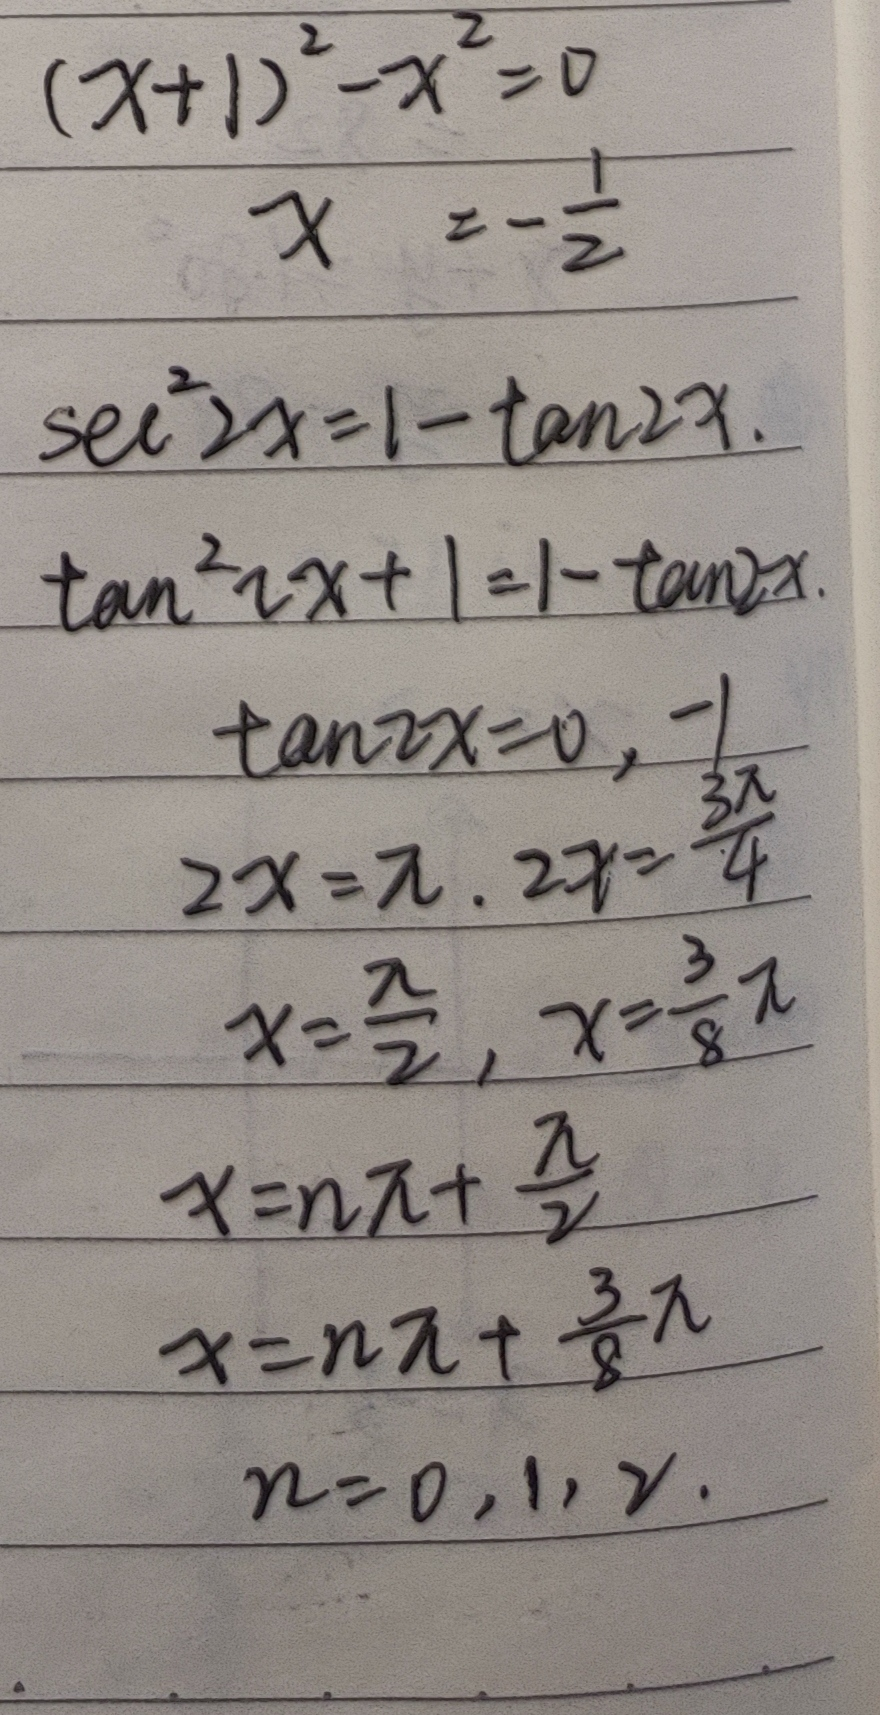 (x+1)² - x² = 0
x = -1/2
sec² 2x = 1 - tan2x.
tan² 2x + 1 = 1 - tan2x.
tan2x = 0, -1
2x = π. 2x = 3π/4
x = π/2, x = 3/8 π
x = nπ + π/2
x = nπ + 3/8 π
n = 0, 1, 2.